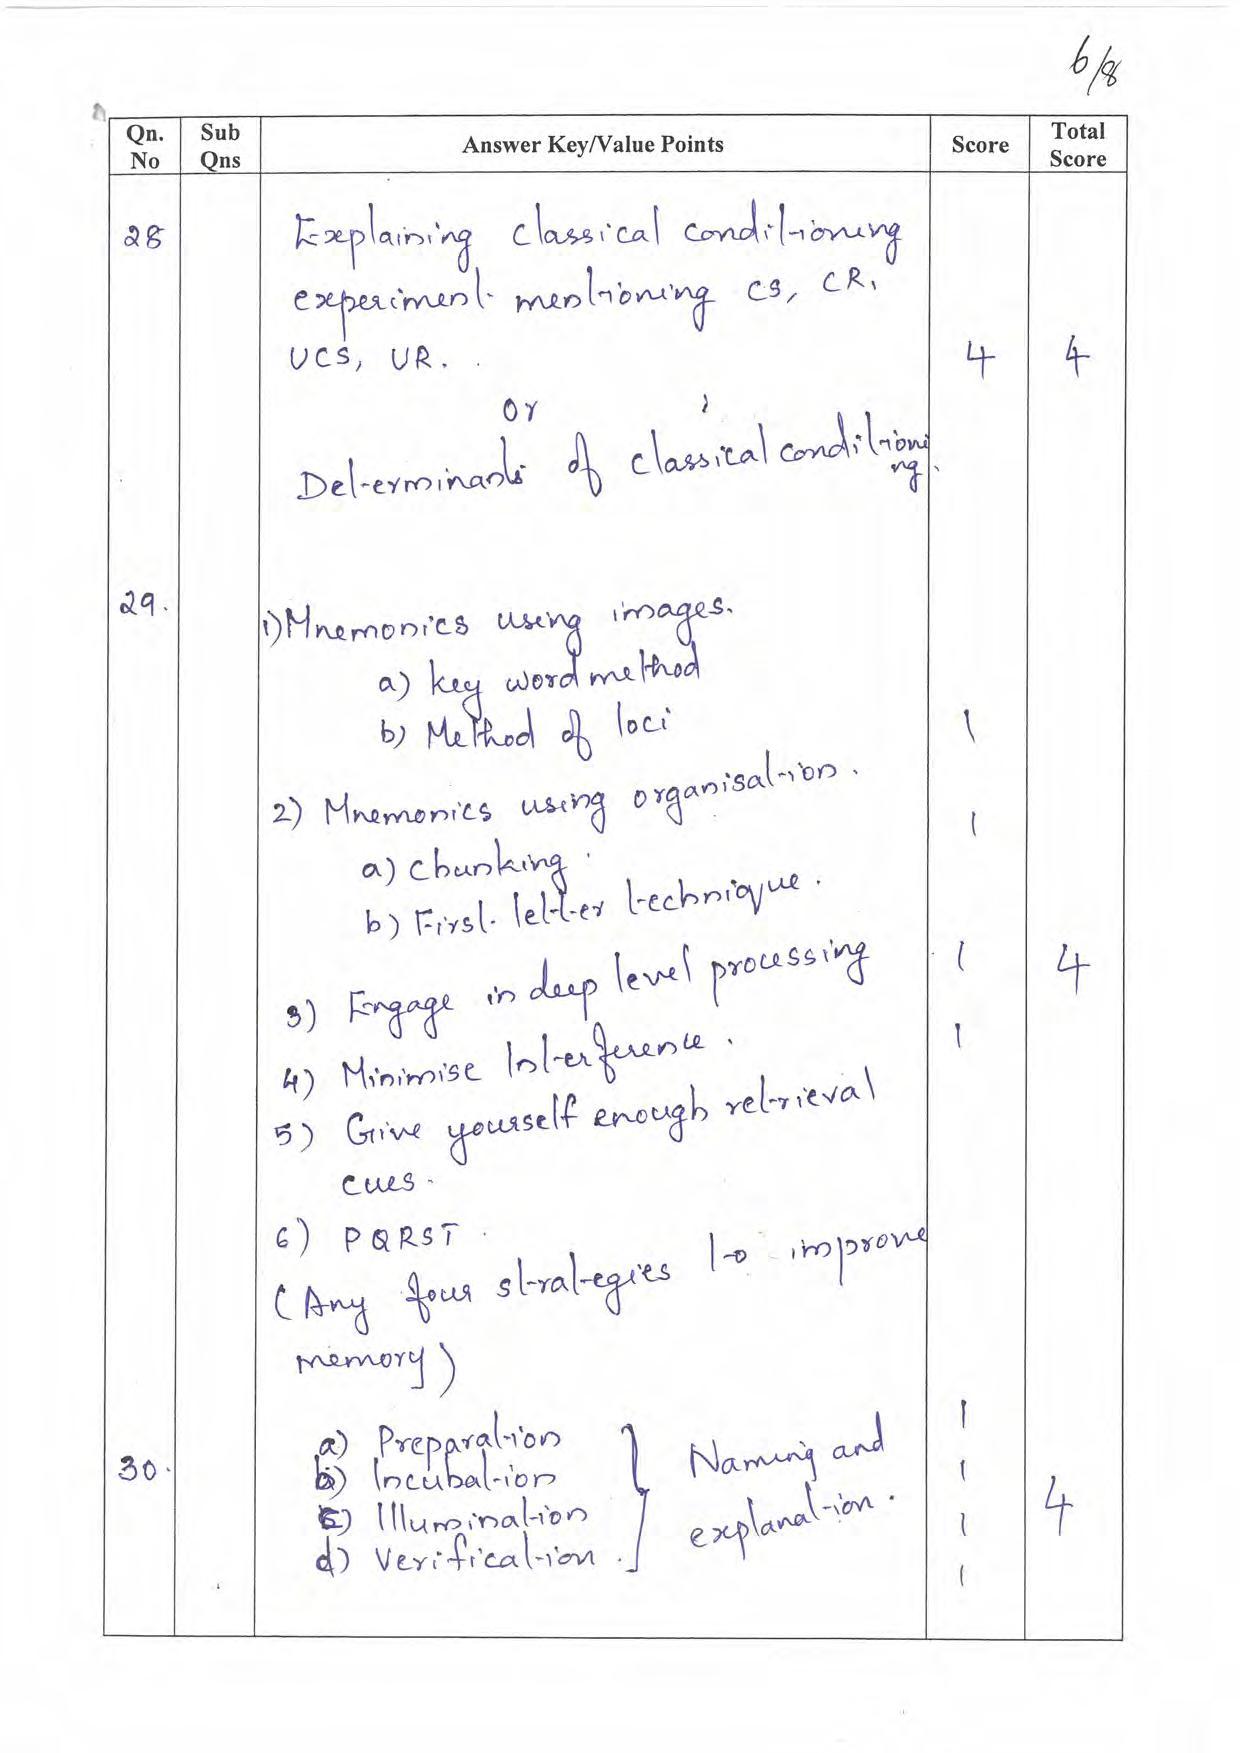 6/8
Qn. No
Sub Qns
Answer Key/Value Points
Score
Total Score
28
Explaining classical conditioning
experiment mentioning CS, CR,
UCS, UR.
4
4
or
Determinants of classical conditioni
ng.
29.
1) Mnemonics using images.
a) key word method
b) Method of loci
1
2) Mnemonics using organisation.
1
a) Chunking.
b) First letter technique.
3) Engage in deep level processing
1
4
4) Minimise Interference.
1
5) Give yourself enough retrieval
cues.
6) PQRST.
(Any four strategies to improve
memory)
30.
a) Preparation
1
b) Incubation
Naming and
1
c) Illumination
explanation.
1
4
d) Verification.
1